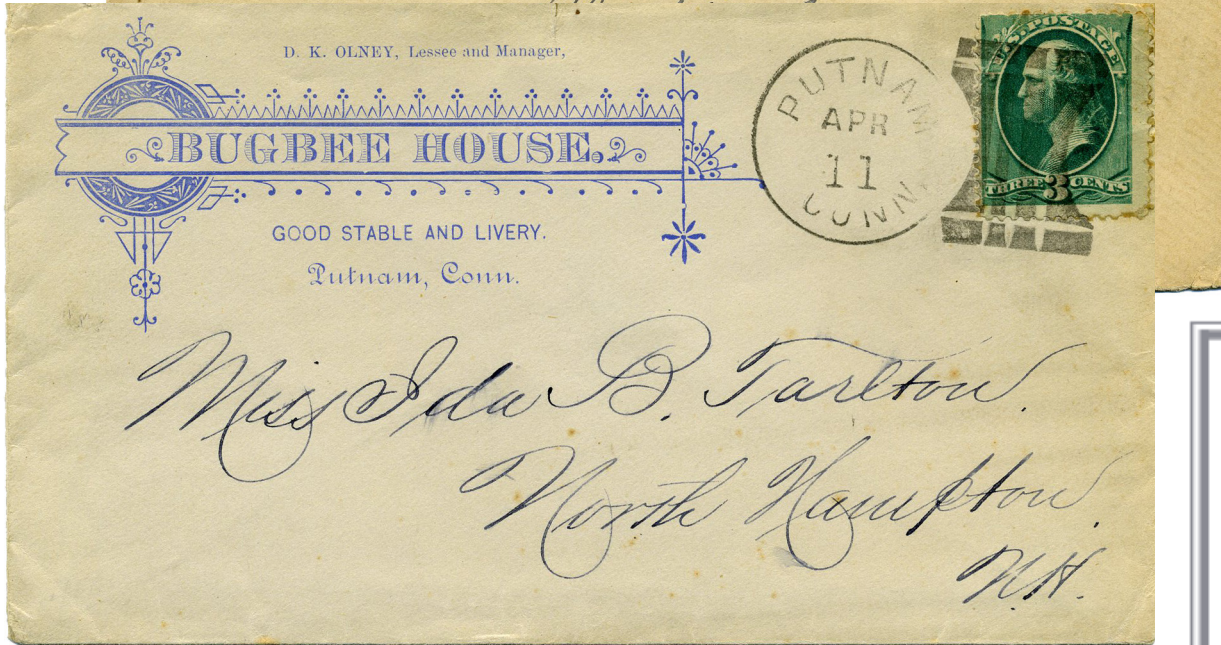 D. K. OLNEY, Lessee and Manager,
BUGBEE HOUSE.
GOOD STABLE AND LIVERY.
Putnam, Conn.
PUTNAM
APR
11
CONN.
U.S. POSTAGE
THREE 3 CENTS
Miss Ida B. Tarlton.
North Hampton,
N.H.